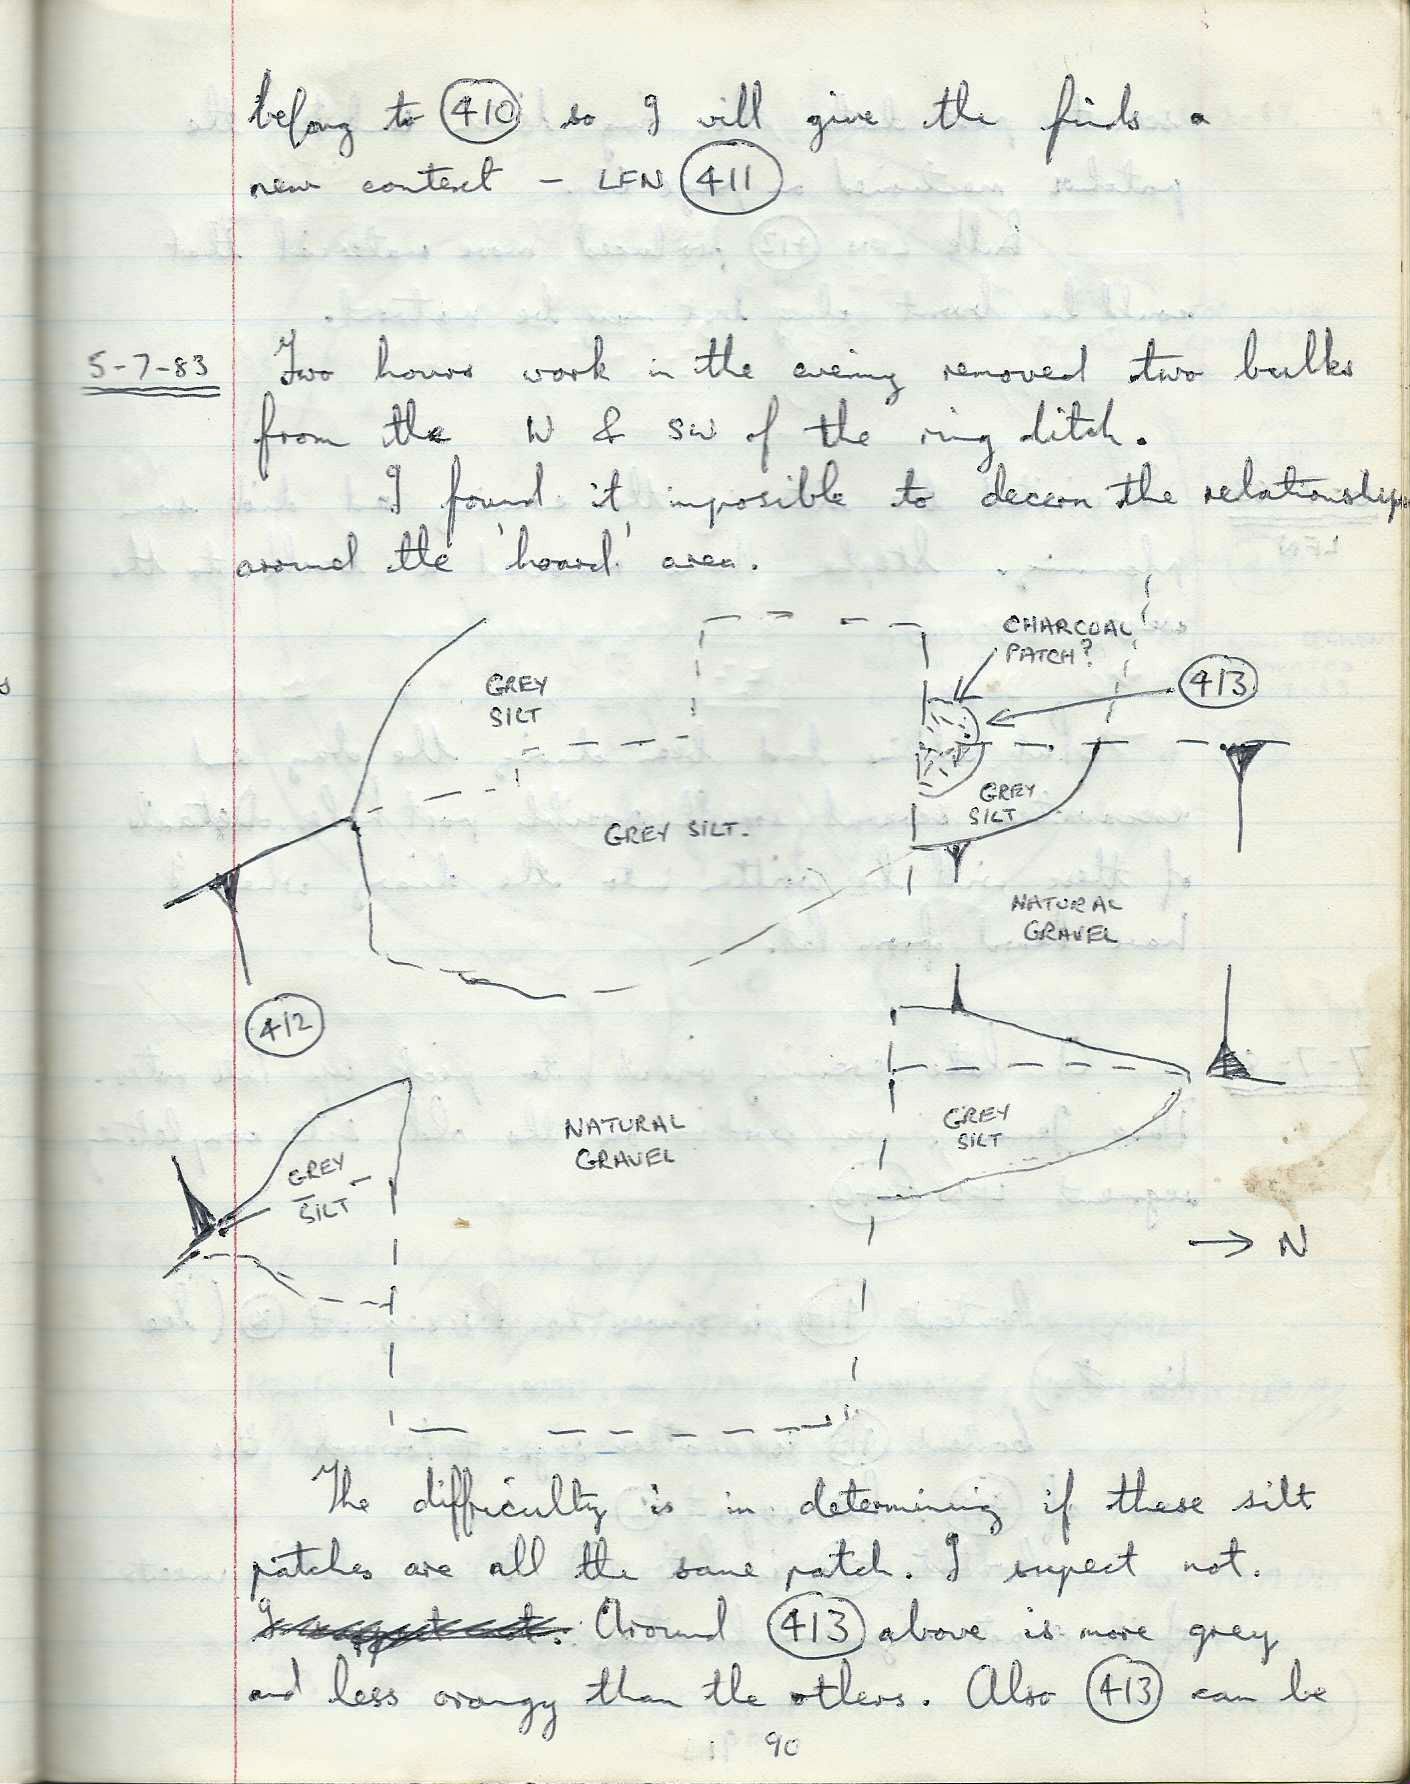 belong to 410 so I will give the finds a
new context - LFN 411
5-7-83 Two hours work in the evening removed two bulks
from the W & SW of the ring ditch.
I found it imposible to decern the relationships
around the 'hoard' area.
CHARCOAL
PATCH?
413
GREY
SILT
GREY
SILT
GREY SILT.
NATURAL
GRAVEL
412
NATURAL
GRAVEL
GREY
SILT
GREY
SILT
→ N
The difficulty is in determining if these silt
patches are all the same patch. I supect not.
Around 413 above is more grey
and less orangy than the others. Also 413 can be
90